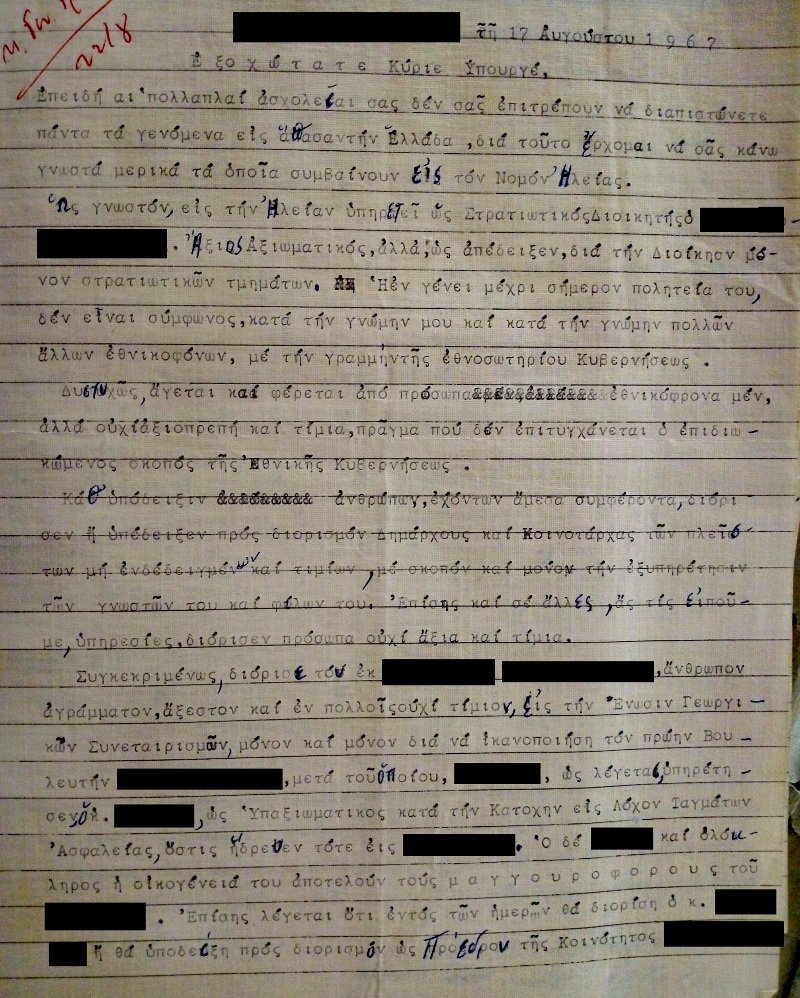 τῇ 17 Αὐγούστου 1 9 6 7
22/8
Ἐ ξ ο χ ώ τ α τ ε Κύριε Ὑπουργέ,
Ἐπειδή αἱ πολλαπλαί ἀσχολεῖαι σας δέν σᾶς ἐπιτρέπουν νά διαπιστώνετε
πάντα τά γενόμενα εἰς ἅπασαντήν Ἑλλάδα ,διά τοῦτο ἔρχομαι νά σᾶς κάνω
γνωστά μερικά τά ὁποῖα συμβαίνουν εἰς τόν Νομόν Ἠλείας.
Ὡς γνωστόν, εἰς τήν Ἠλείαν ὑπηρετεῖ ὡς ΣτρατιωτικόςΔιοικητήςὁ
. Ἄξιος Ἀξιωματικός,ἀλλά,ὡς ἀπέδειξεν,διά τήν Διοίκησν μό-
νον στρατιωτικῶν τμημάτων. Ἡἐν γένει μέχρι σήμερον πολητεία του,
δέν εἶναι σύμφωνος,κατά τήν γνώμην μου καί κατά τήν γνώμην πολλῶν
ἄλλων ἐθνικοφόνων, μέ τήν γραμμήντῆς ἐθνοσωτηρίου Κυβερνήσεως .
Δυστυχῶς,ἄγεται καί φέρεται ἀπό πρόσωπα ἐθνικόφρονα μέν,
ἀλλά οὐχίἀξιοπρεπή καί τίμια,πρᾶγμα πού δέν ἐπιτυγχάνεται ὁ ἐπιδιω -
κώμενος σκοπός τῆς Ἐθνικῆς Κυβερνήσεως .
Κάθ ὑπόδειξιν ἀνθρώπων,ἐχόντων ἄμεσα συμφέροντα,διόρι -
σεν ἤ ὑπέδειξεν πρός διορισμόν Δημάρχους καί Κοινοτάρχας τῶν πλείσ -
των μή ἐνδεδειγμένων καί τιμίων ,μέ σκοπόν καί μόνον τήν ἐξυπηρέτησιν
τῶν γνωστῶν του καί φίλων του. Ἐπίσης καί σέ ἄλλες ,ἄς τίς εἰποῦ -
με,ὑπηρεσίες,διόρισεν πρόσωπα οὐχί ἄξια καί τίμια.
Συγκεκριμένως, διόρισε τόν ἐκ ,ἄνθρωπον
ἀγράμματον,ἄξεστον καί ἐν πολλοῖςοὐχί τίμιον, εἰς τήν Ἕνωσιν Γεωργι -
κῶν Συνεταιρισμῶν, μόνον καί μόνον διά νά ἱκανοποιήση τόν πρώην Βου -
λευτήν ,μετά τοῦὁποίου, , ὡς λέγεται,ὑπηρέτη -
σεν,ὁ κ. ,ὡς Ὑπαξιωματικος κατά τήν Κατοχην εἰς Λόχον Ταγμάτων
Ἀσφαλείας, ὅστις ἥδρευεν τότε εἰς . Ὁ δέ καί ὁλόκ-
ληρος ἡ οἰκογένειά του ἀποτελοῦν τούς μ α γ γ ο υ ρ ο φ ο ρ ο υ ς τοῦ
. Ἐπίσης λέγεται ὅτι ἐντός τῶν ἡμερῶν θά διορίση ὁ κ.
ἤ θά ὑποδείξη πρός διορισμόν ὡς Πρόεδρον τῆς Κοινότητος